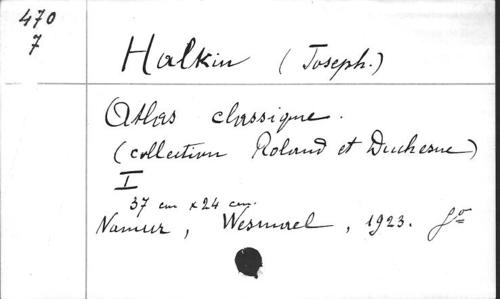 470
7
Halkin (Joseph.)
Atlas classique.
(collection Roland et Duchesne)
I
37 cm x 24 cm.
Namur, Wesmael, 1923. fo